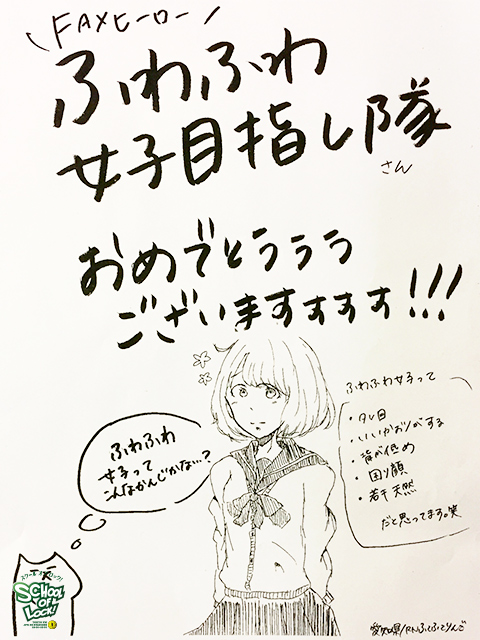 FAXヒーロー
ふわふわ
女子目指し隊
さん
おめでとうううう
ございますすすす!!!
ふわふわ女子って
・タレ目
・いいかおりがする
・背が低め
・困り顔
・若干天然
だと思ってます。笑
ふわふわ
女子って
こんなかんじかな…?
スクールオブロック!
SCHOOL
OF
LOCK!
愛知県/RN.ふふてりんご